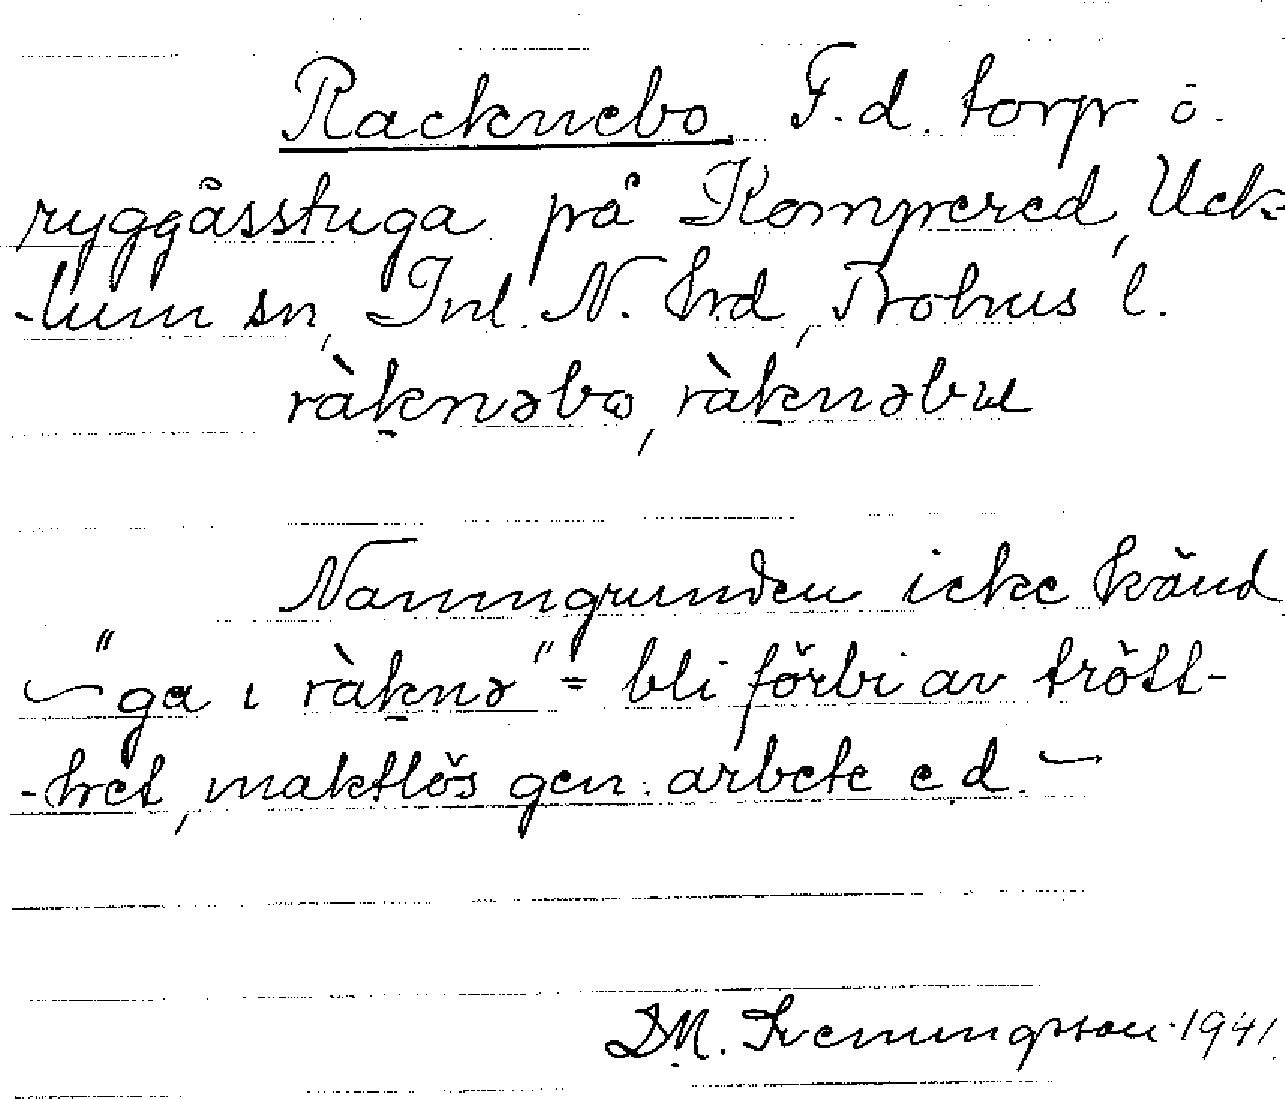 Racknebo. F.d. torp o.
ryggåsstuga på Kompered, Uck-
-lum sn, Inl. N. hd, Bohus l.
ràk̠nəbo, ràk̠nəbu
Namngrunden icke känd
— "ga ı ràk̠nə" = bli förbi av trött-
-het, maktlös gen. arbete e.d. —
1941